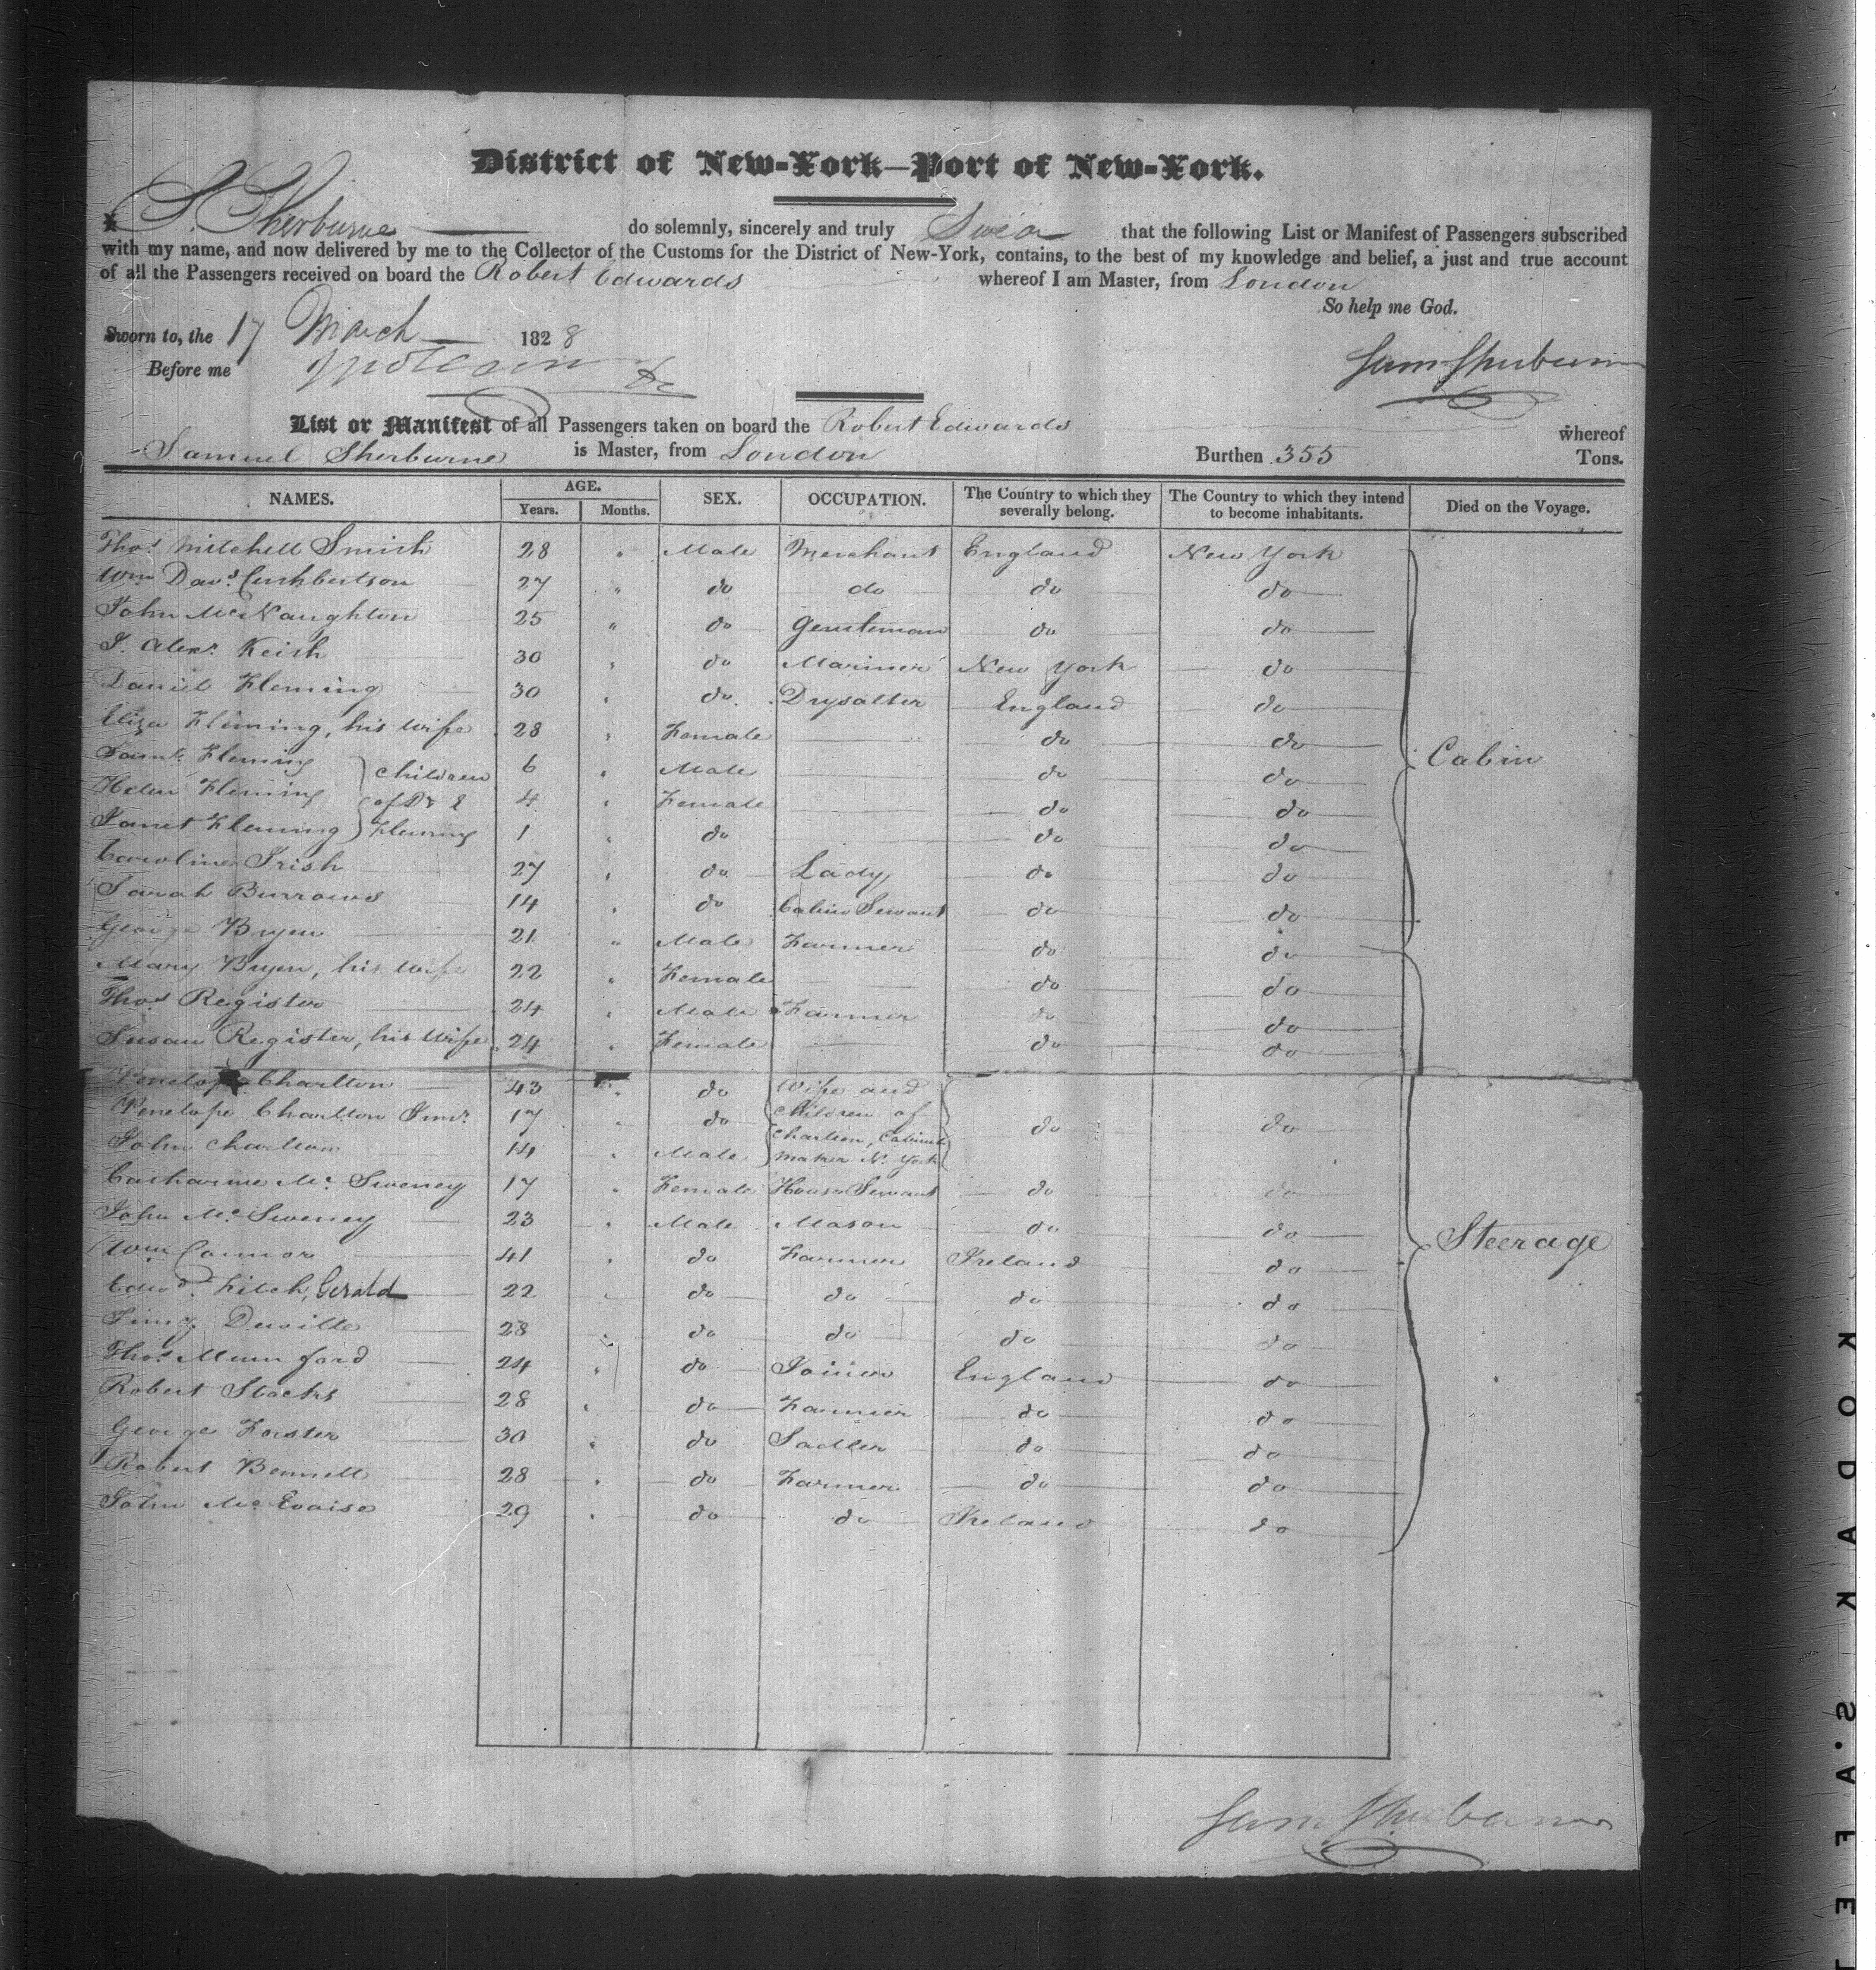 District of New-York—Port of New-York.
I, S. Sherburne do solemnly, sincerely and truly Swear that the following List or Manifest of Passengers subscribed
with my name, and now delivered by me to the Collector of the Customs for the District of New-York, contains, to the best of my knowledge and belief, a just and true account
of all the Passengers received on board the Robert Edwards whereof I am Master, from London
So help me God.
Sworn to, the 17 March 1828
Before me
Sam Sherburne
List or Manifest of all Passengers taken on board the Robert Edwards whereof
Samuel Sherburne is Master, from London Burthen 355 Tons.
NAMES. AGE. Years. Months. SEX. OCCUPATION. The Country to which they severally belong. The Country to which they intend to become inhabitants. Died on the Voyage.
Thos Mitchell Smith 28 " Male Merchant England New York
Wm Davd. Cuthbertson 27 " do do do do
John McNaughton 25 " do Gentleman do do
J. Alexr. Keith 30 " do Mariner New York do
Daniel Fleming 30 " do Drysalter England do
Eliza Fleming, his wife 28 " Female do do
Saml. Fleming 6 " Male do do
Helen Fleming 4 " Female do do
Janet Fleming 1 " do do do
children
of D & E
Fleming
Cabin
Caroline Irish 27 " do Lady do do
Sarah Burrows 14 " do Cabin Servant do do
George Bryen 21 " Male Farmer do do
Mary Bryen, his wife 22 " Female do do
Thos Register 24 " Male Farmer do do
Susan Register, his wife 24 " Female do do
Penelope Charlton 43 " do
Penelope Charlton Junr. 17 " do do do
John Charlton 14 " Male
Wife and
Children of
Charlton, Cabinet
maker N. York
Catharine Mc Sweney 17 " Female House Servant do do
John Mc Sweney 23 " Male Mason do do
Steerage
Wm Connor 41 " do Farmer Ireland do
Edwd. Fitch, Gerald 22 " do do do do
Deville 28 " do do do do
Thos. Mumford 24 " do Joiner England do
Robert Stocks 28 " do Farmer do do
George Forster 30 " do Sadler do do
Robert Bennett 28 " do Farmer do do
John Mc 29 " do do Ireland do
Sam Sherburne
KODAK S.AFE